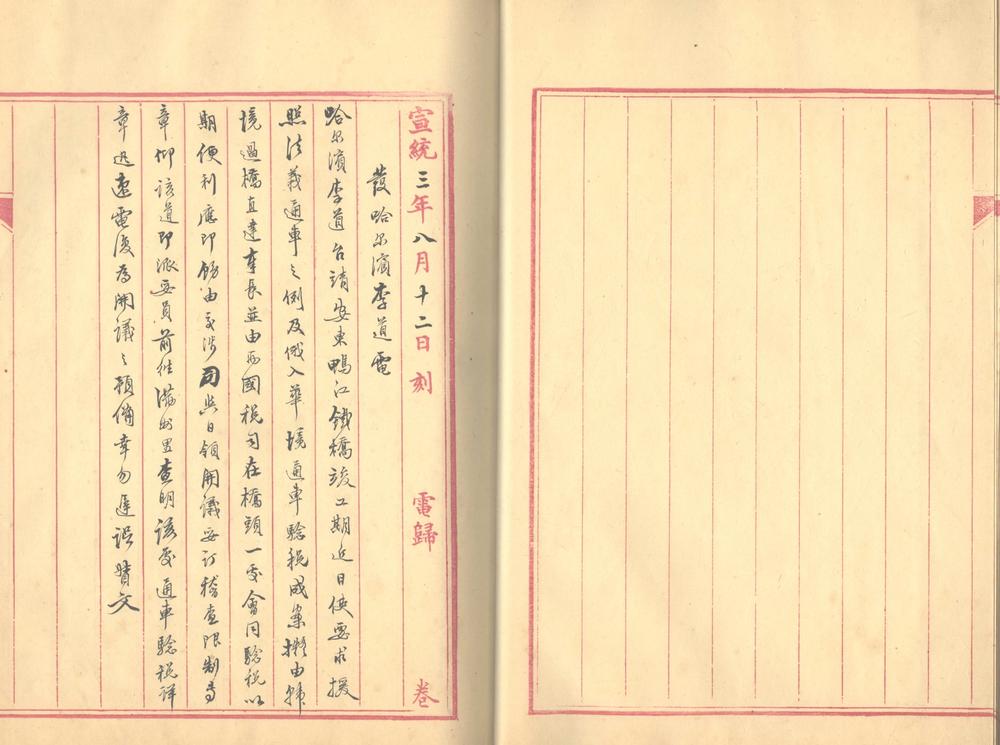 宣統三年八月十二日刻 電歸 卷
發哈尔濱李道電
哈尔濱李道台靖安東鴨江鐵橋竣工期近日使要求援
照法義通車之例及俄入華境通車驗税成案擬由韓
境過橋直達奉長並由兩國税司在橋頭一處會同驗税以
期便利應即飭由交涉司與日領開議妥訂稽查限制專
章仰該道即派妥員前往滿洲里查明該處通車驗税詳
章迅速電復為開議之預備幸勿遲誤賛文